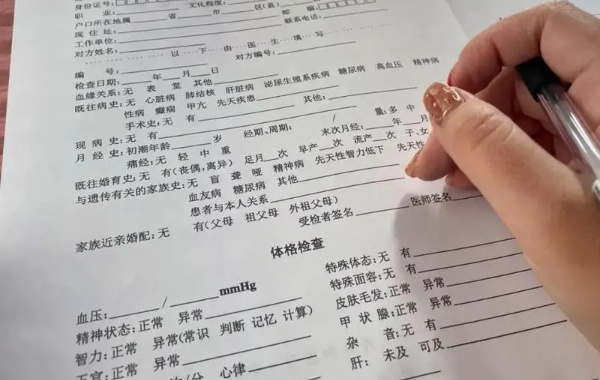 身份证号:
职 业: 文化程度:
户口所在地属 省 市 区(县) 邮 编:
现 住 址: 联系电话:
工作单位:
对方姓名:
以 下 由 医 生 填 写
编 号: 对方编号:
检查日期: 年 月 日
血缘关系:无 表 堂 其他
既往病史:无 心脏病 肺结核 肝脏病 泌尿生殖系疾病 糖尿病 高血压 精神病
性病 癫痫 甲亢 先天疾患 其他:
手术史:无 有
现 病 史:无 有
月 经 史:初潮年龄 岁 经期、周期: / 量:多 中
痛经:无 轻 中 重 末次月经: 年 月
既往婚育史:无 有(丧偶,离异) 足月 次 早产 次 流产 次 子、女
与遗传有关的家族史:无 盲 聋 哑 精神病 先天性智力低下 先天性
血友病 糖尿病 其他
患者与本人关系
家族近亲婚配:无 有(父母 祖父母 外祖父母)
受检者签名 医师签名
体格检查
血压: / mmHg
特殊体态:无 有
精神状态:正常 异常
特殊面容:无 有
智力:正常 异常(常识 判断 记忆 计算)
皮肤毛发:正常 异常
五官:正常 异常
甲 状 腺:正常 异常
次/分 心律
杂 音:无 有
肝: 未及 可及